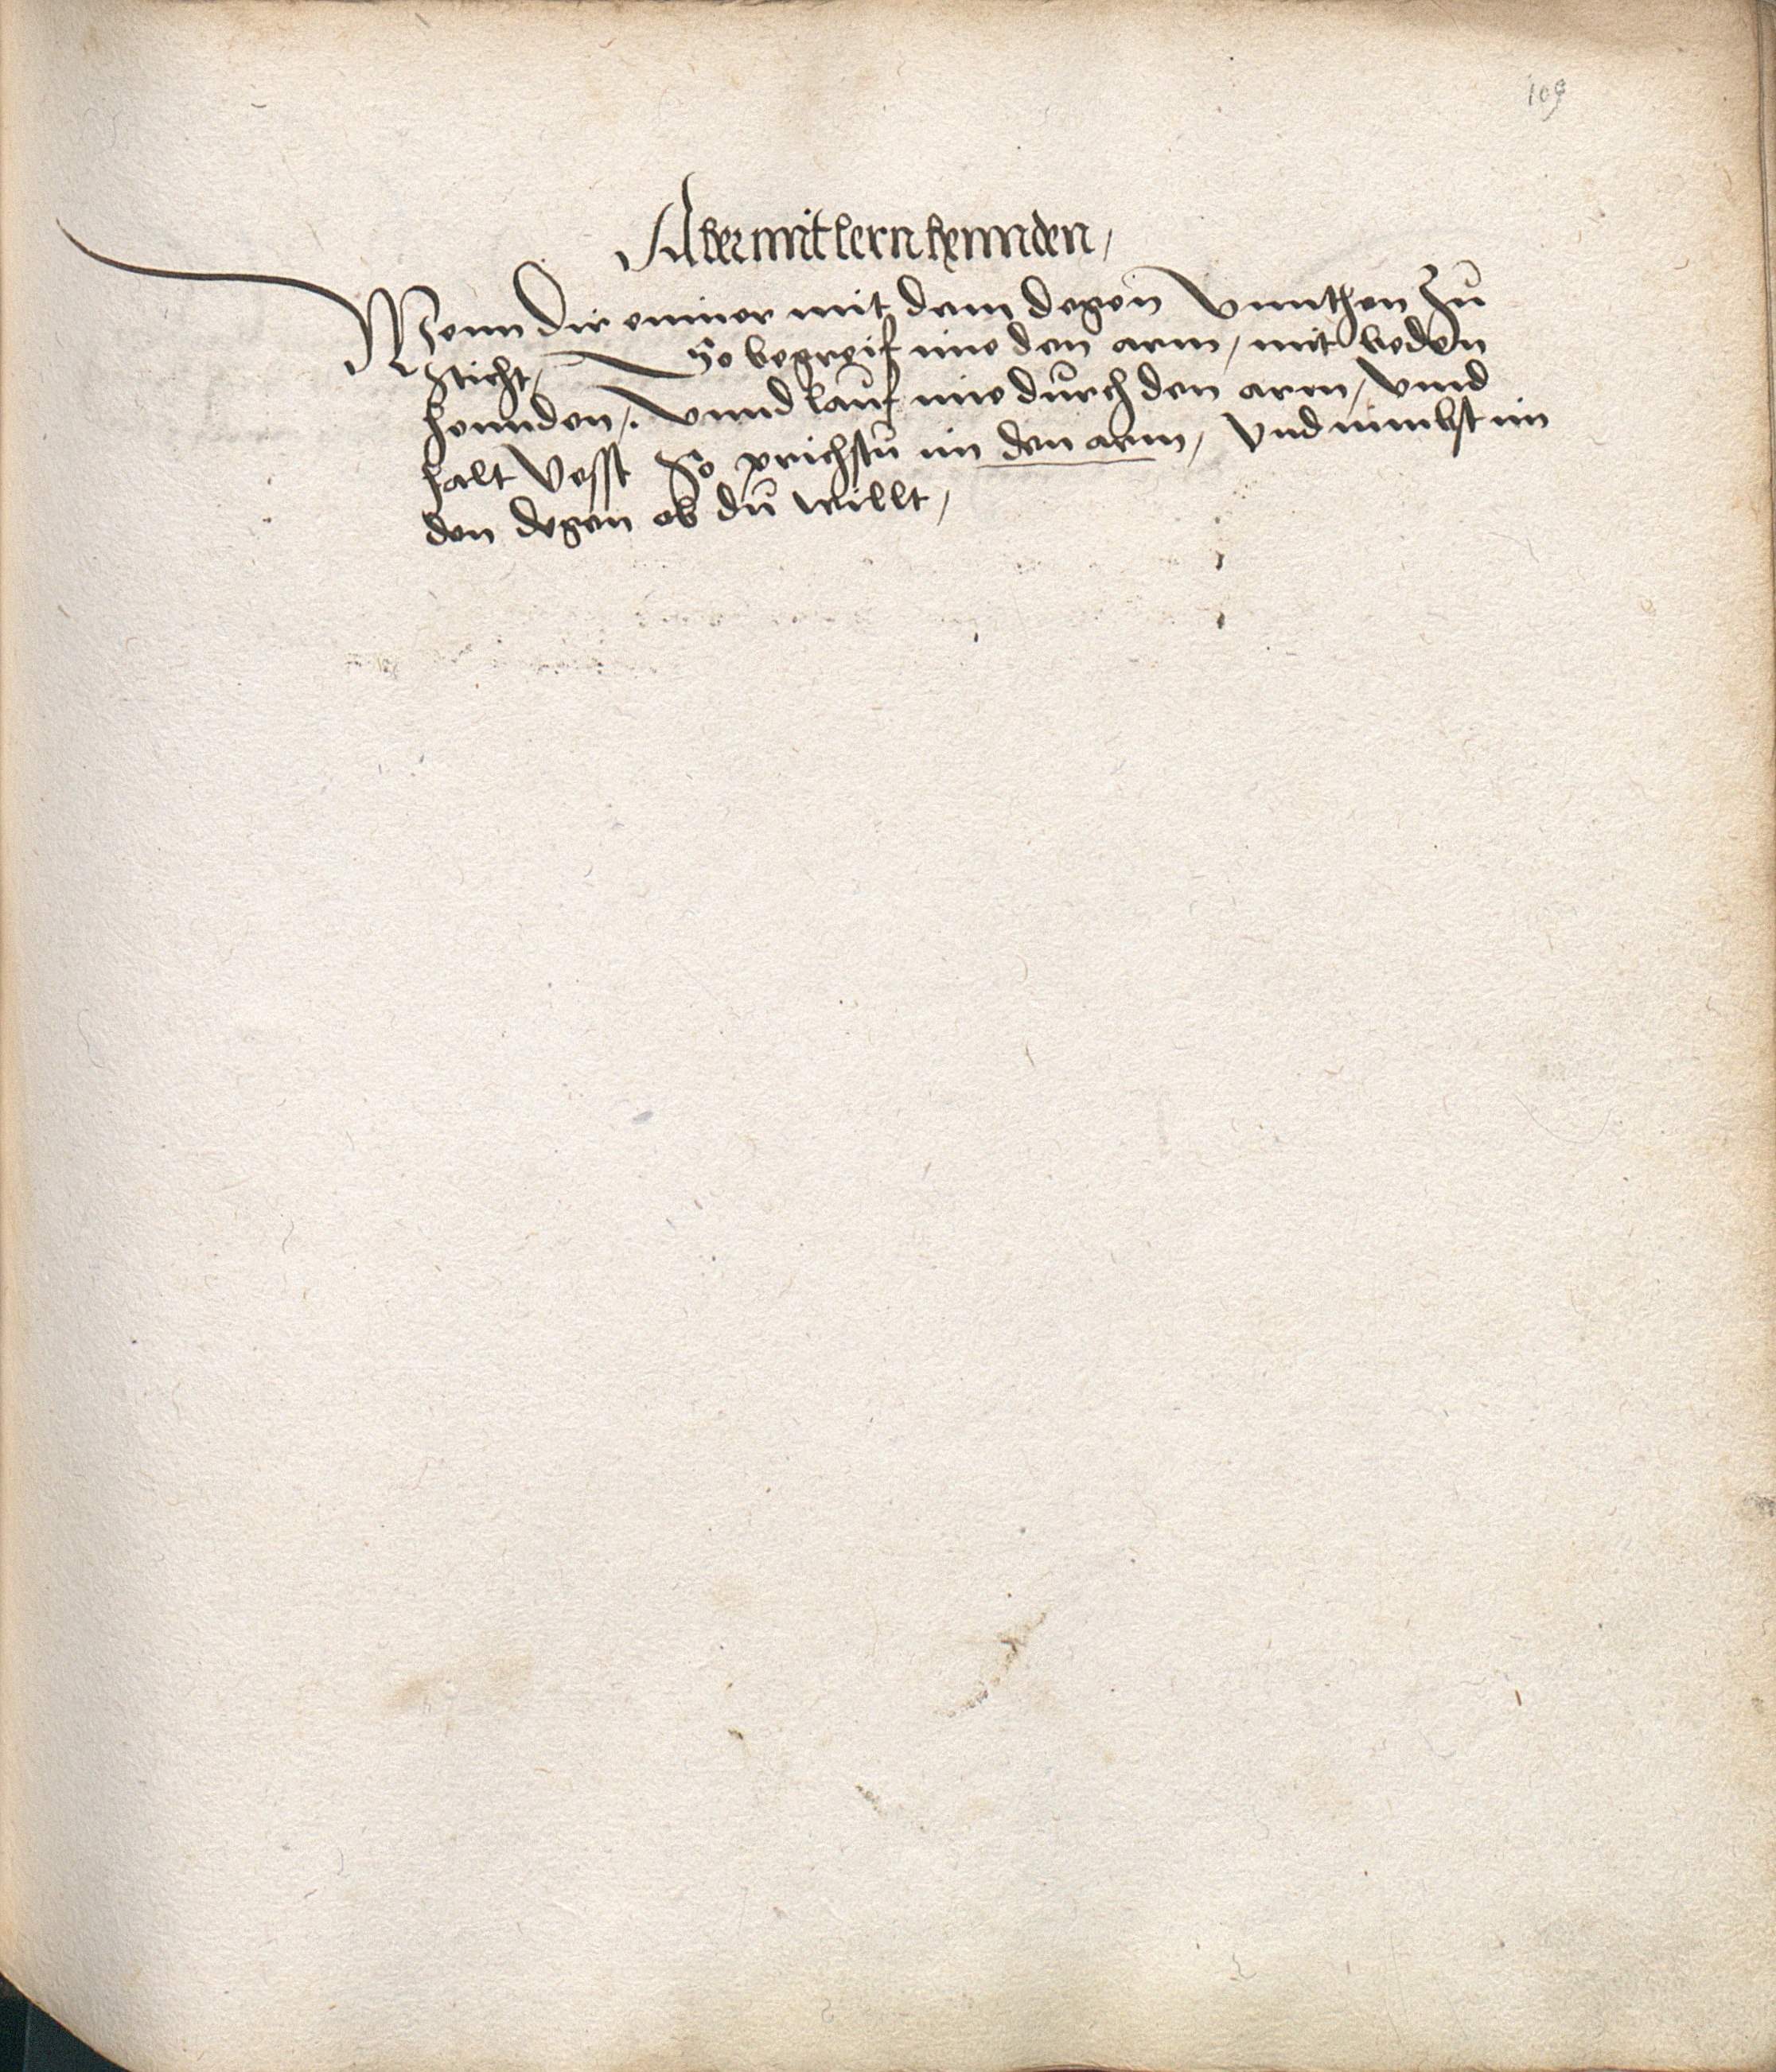 109
Aber mit lern hennden,
Wenn dir einner mit dem degen Vnnthen Zu
sticht, So begreif ime den arm, mit beden
hennden, Vnnd lauf ime durch den arm, Vnnd
halt Vesst So prichstu im den arm, Vnd nimbst im
den degen ob du willt,